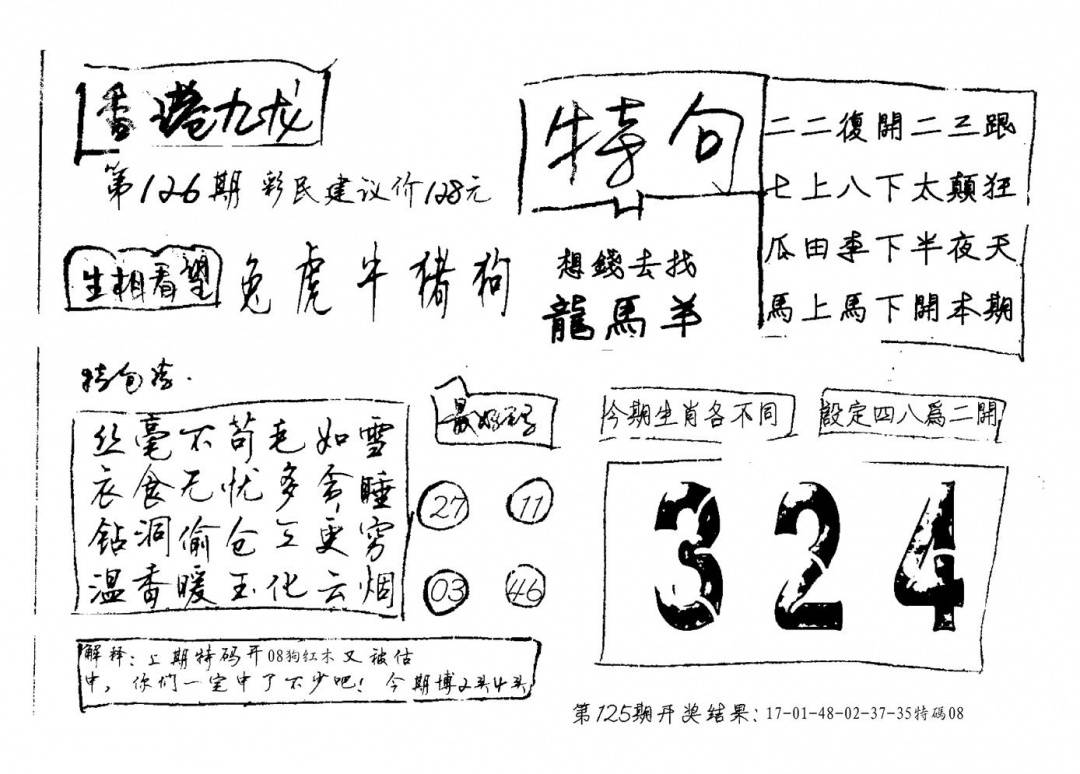 香港九龙
第126期 彩民建议价128元
生相看望
兔虎牛猪狗
特句
想錢去找
龍馬羊
二二復開二三跟
七上八下太顛狂
瓜田李下半夜天
馬上馬下開本期
丝毫不苟毛如雪
衣食无忧多贪睡
钻洞偷仓三更穷
温香暖玉化云烟
27 11
03 46
今期生肖各不同
設定四八爲二開
324
解释:上期特码开08狗红木又被估
中,你们一定中了不少吧!今期博2头4头
第125期开奖结果:17-01-48-02-37-35特碼08